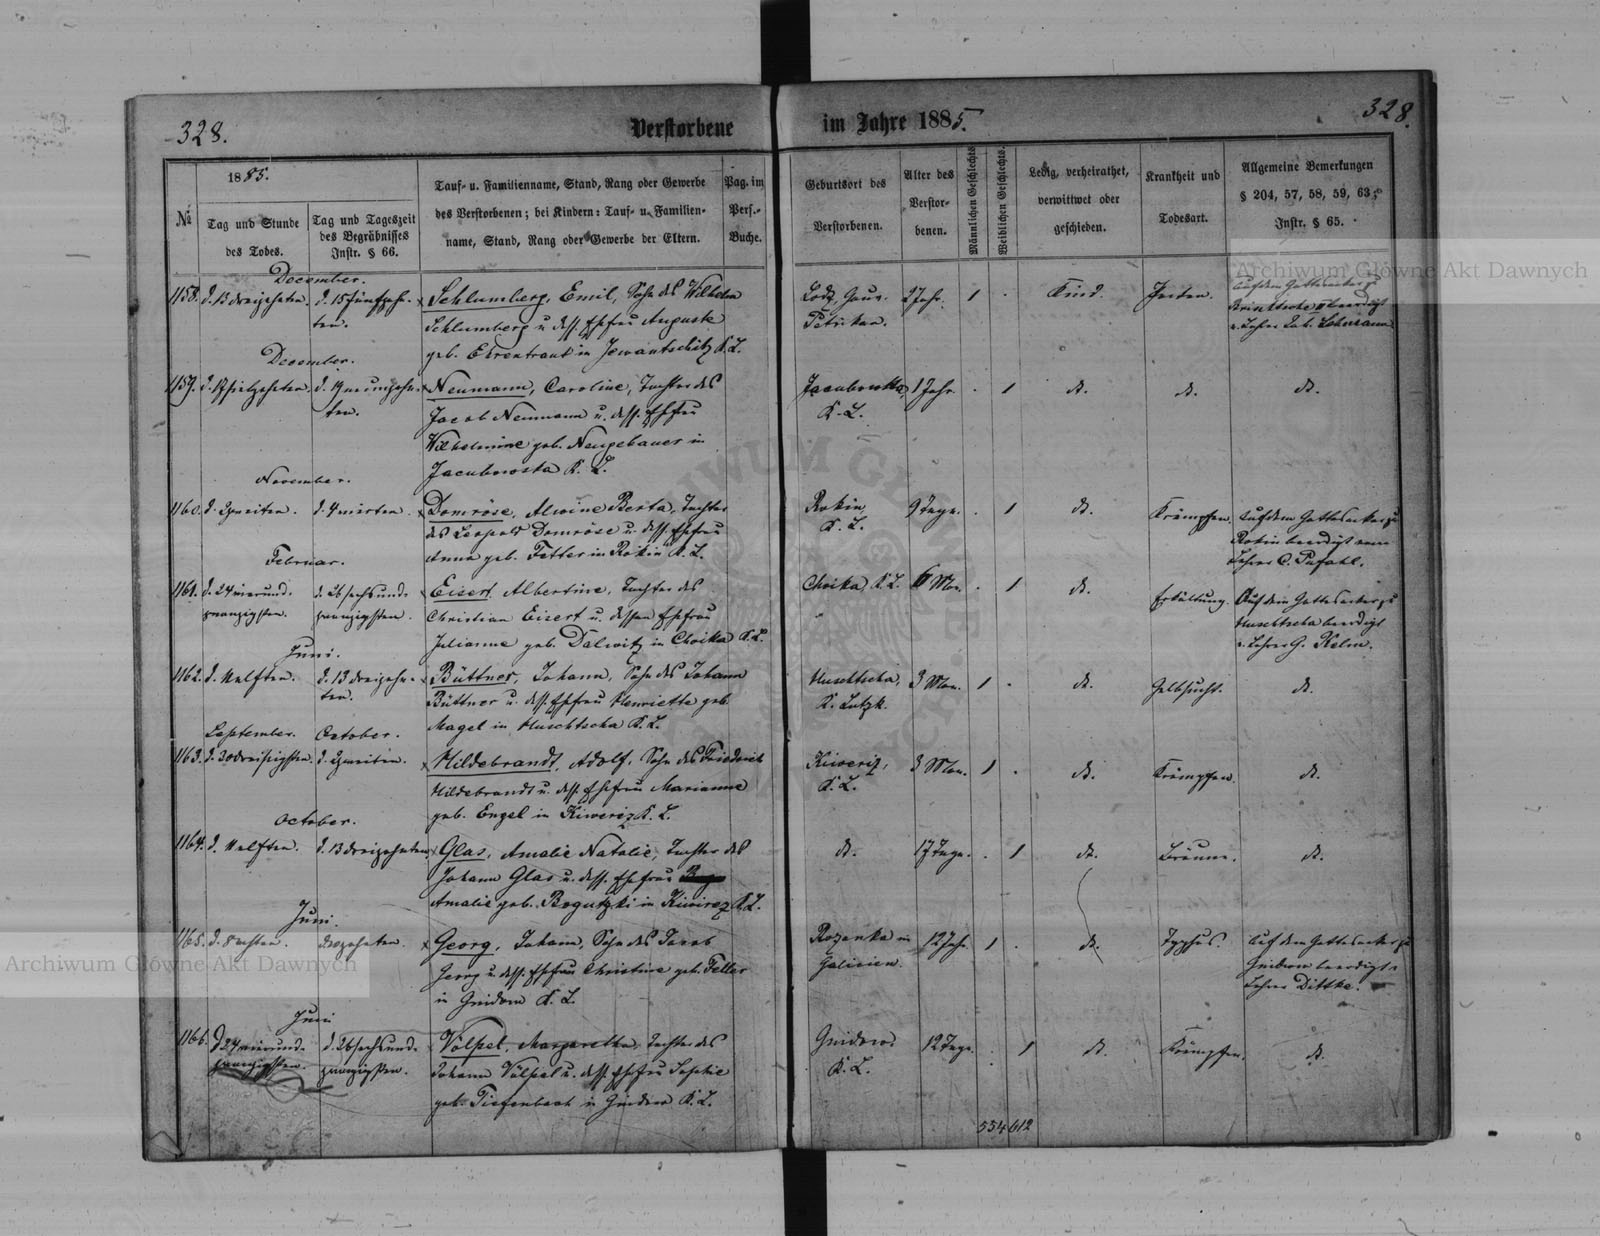 328.
Verstorbene
im Jahre 1885.
328.
№
1885.
Tag und Stunde
des Todes.
Tag und Tageszeit
des Begräbnisses
Instr. § 66.
Tauf- u. Familienname, Stand, Rang oder Gewerbe
des Verstorbenen; bei Kindern: Tauf- u. Familien-
name, Stand, Rang oder Gewerbe der Eltern.
Pag. im
Pers.-
Buche.
Geburtsort des
Verstorbenen.
Alter des
Verstor-
benen.
Männlichen Geschlechts.
Weiblichen Geschlechts.
Ledig, verheirathet,
verwittwet oder
geschieden.
Krankheit und
Todesart.
Allgemeine Bemerkungen
§ 204, 57, 58, 59, 63;
Instr. § 65.
December.
1158. d. 13 dreizehnten. d. 15 fünfzehn-
ten.
Schlumberg, Emil, Sohn des Wilhelm
Schlumberg u. dess. Ehefrau Auguste
geb. Ehrentraut in Jewantschitz K. L.
Lodz, Gouv.
Petrikau.
2 Jahr. 1 Kind.
Auf dem Gottesacker zu
beerdigt
v. Lehrer Lehmann
December.
1159. d. 19 neunzehn-
ten.
Neumann, Caroline, Tochter des
Jacob Neumann u. dess. Ehefrau
Wilhelmine geb. Neugebauer in
Jacubowska K. L.
Jacubowka,
K. L.
1 Jahr. 1 dt. dt. dt.
November.
1160. d. 2 zweiten. d. 4 vierten.
Domröse, Alwine Berta, Tochter
des Leopold Domröse u. dess. Ehefrau
Anna geb. Fetter in Rokin K. L.
Rokin,
K. L.
9 Tage. 1 dt. Krämpfen.
Auf dem Gottesacker zu
Rokin beerdigt vom
Lehrer C. Pufahl.
Februar.
1161. d. 24 vierund-
zwanzigsten.
d. 26 sechsund-
zwanzigsten.
Eisert Albertine, Tochter des
Christian Eisert u. dessen Ehefrau
Julianne geb. Dalwitz in Choika K. L.
Choika, K. L. 6 Mon. 1 dt. Erkältung.
Auf dem Gottesacker zu
Huschtscha beerdigt
v. Lehrer G. Kelm.
Juni.
1162. d. 11 elften. d. 13 dreizehn-
ten.
Büttner, Johann, Sohn des Johann
Büttner u. dess. Ehefrau Henriette geb.
Magel in Huschtscha K. L.
Huschtscha,
K. Lutzk.
3 Mon. 1 dt. Gelbsucht. dt.
September. October.
1163. d. 30 dreißigsten. d. 2 zweiten.
Hildebrandt, Adolf, Sohn des Friedrich
Hildebrandt u. dess. Ehefrau Marianne
geb. Engel in Kiweriz K. L.
Kiweriz,
K. L.
3 Mon. 1 dt. Krämpfen. dt.
October.
1164. d. 11 elften. d. 13 dreizehnten.
Glas, Amalie Natalie, Tochter des
Johann Glas u. dess. Ehefrau
Amalie geb. Bogutzki in Kiwirez K. L.
dt. 17 Tage. 1 dt. Bräune. dt.
Juni.
1165.
Georg, Johann, Sohn des Jacob
Georg u. dess. Ehefrau Christine geb. Feller
in Gnidow K. L.
Rozanka in
Galicien.
12 Jahr. 1 dt. Typhus.
Auf dem Gottesacker zu
Gnidow beerdigt v.
Lehrer Dittke.
Juni
1166. d 24 vierund-
zwanzigsten.
d. 26 sechsund-
zwanzigsten.
Völpel, Margaretha Tochter des
Johann Völpel u. dess. Ehefrau Sophie
geb. Tiefenbach in Gnidow K. L.
Gnidow
K. L.
12 Tage. 1 dt. Krämpfen. dt.
554 612
Archiwum Główne Akt Dawnych
Archiwum Główne Akt Dawnych